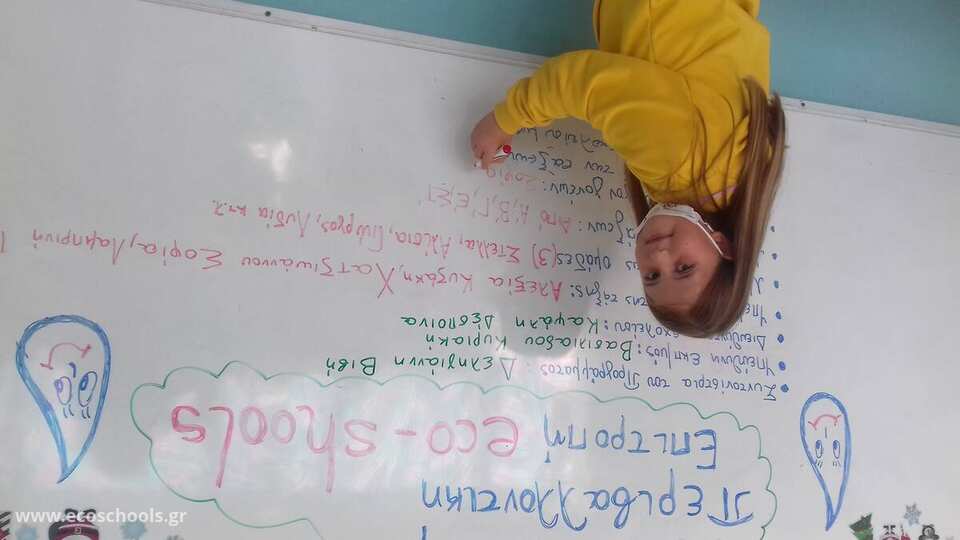 Περιβαλλοντική
Επιτροπή eco-shools
Συντονίστρια του Προγράμματος: Δεληγιάννη Βιβή
Υπεύθυνη Εκπ/κός: Βασιλιάδου Κυριακή
Διευθύντρια σχολείου: Καψάλη Δέσποινα
της τάξης: Αλεξία Κυζάκη, Χατζιωάννου Σοφία, Λαμπρινή
ομάδες(3) Στέλλα, Αλέσια, Γιώργος, Λυδία κτλ.
τάξεων: Από Α', Β', Γ', Ε', ΣΤ'
γονέων: Σοφία
των τάξεων
σχολείου
www.ecoschools.gr